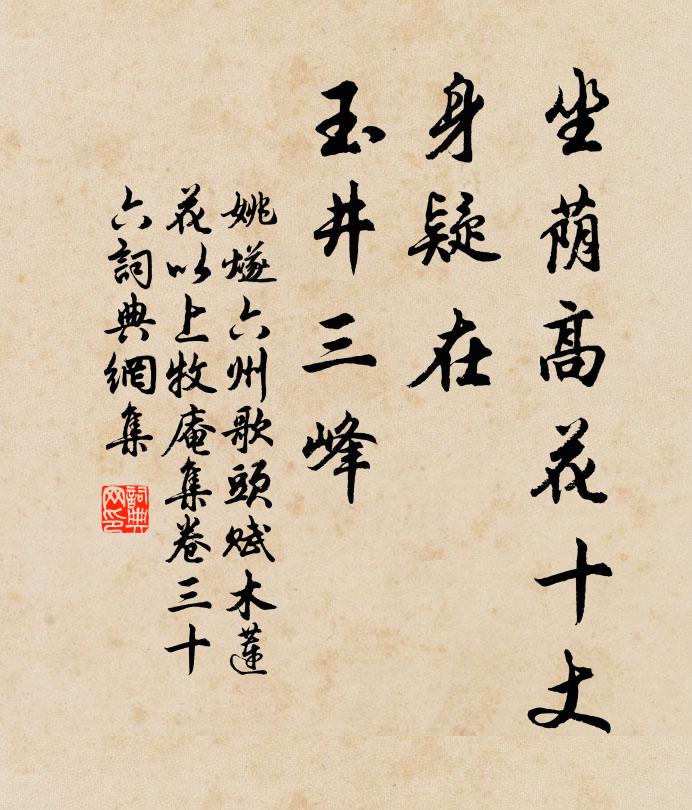 坐荫高花十丈
身疑在
玉井三峰
姚燧六州歌頭赋木蓮
花以上牧庵集卷三十
六詞典網集
詞典
网印